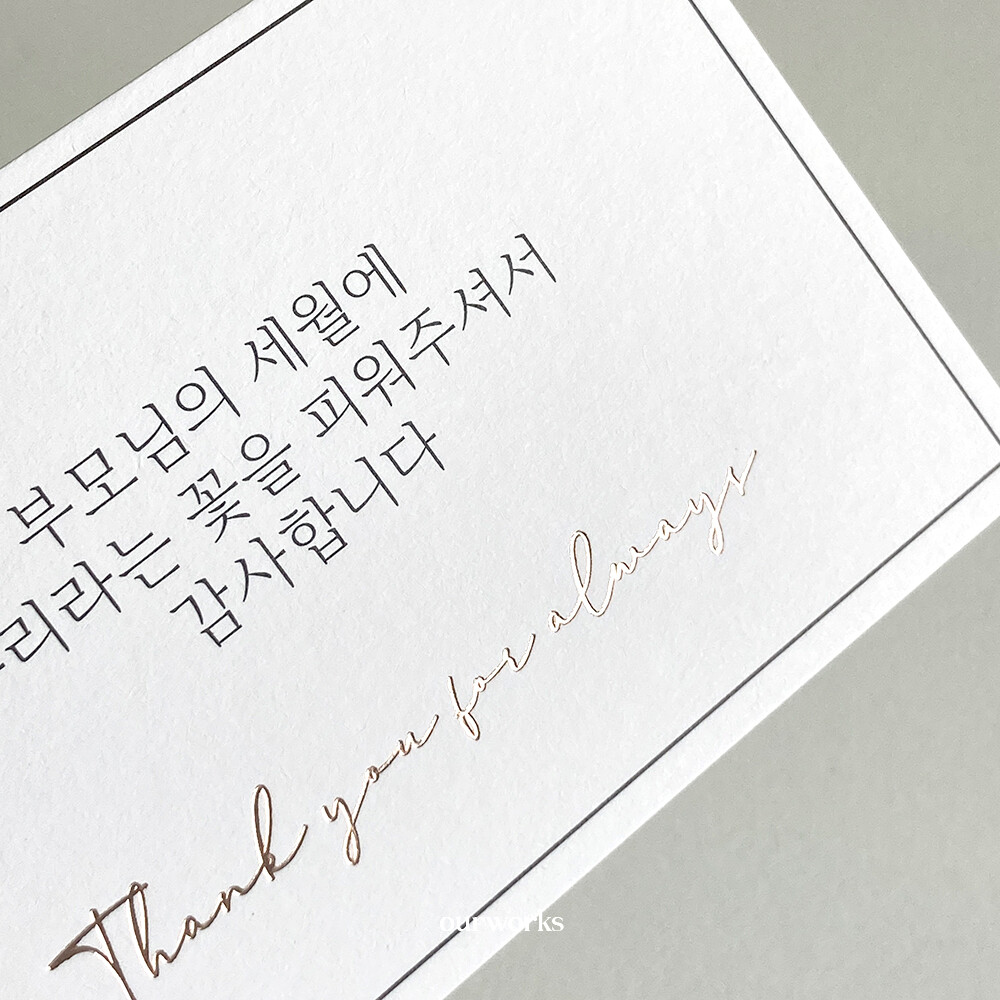 부모님의 세월에
리라는 꽃을 피워주셔서
감사합니다
Thank you for always
ourworks